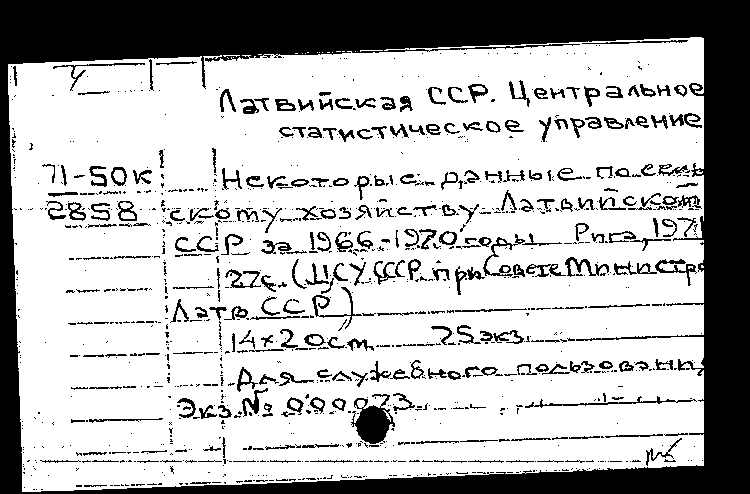 у
Латвийская ССР. Центральное
статистическое управление
71-50к Некоторые данные по сель
2858 скому хозяйству Латвийской
ССР за 1966-1970 годы Рига, 1971
27с. (ЦСУ СССР при Совете Министро
Латв ССР)
14×20см 75экз.
Для служебного пользования
Экз. № 000073